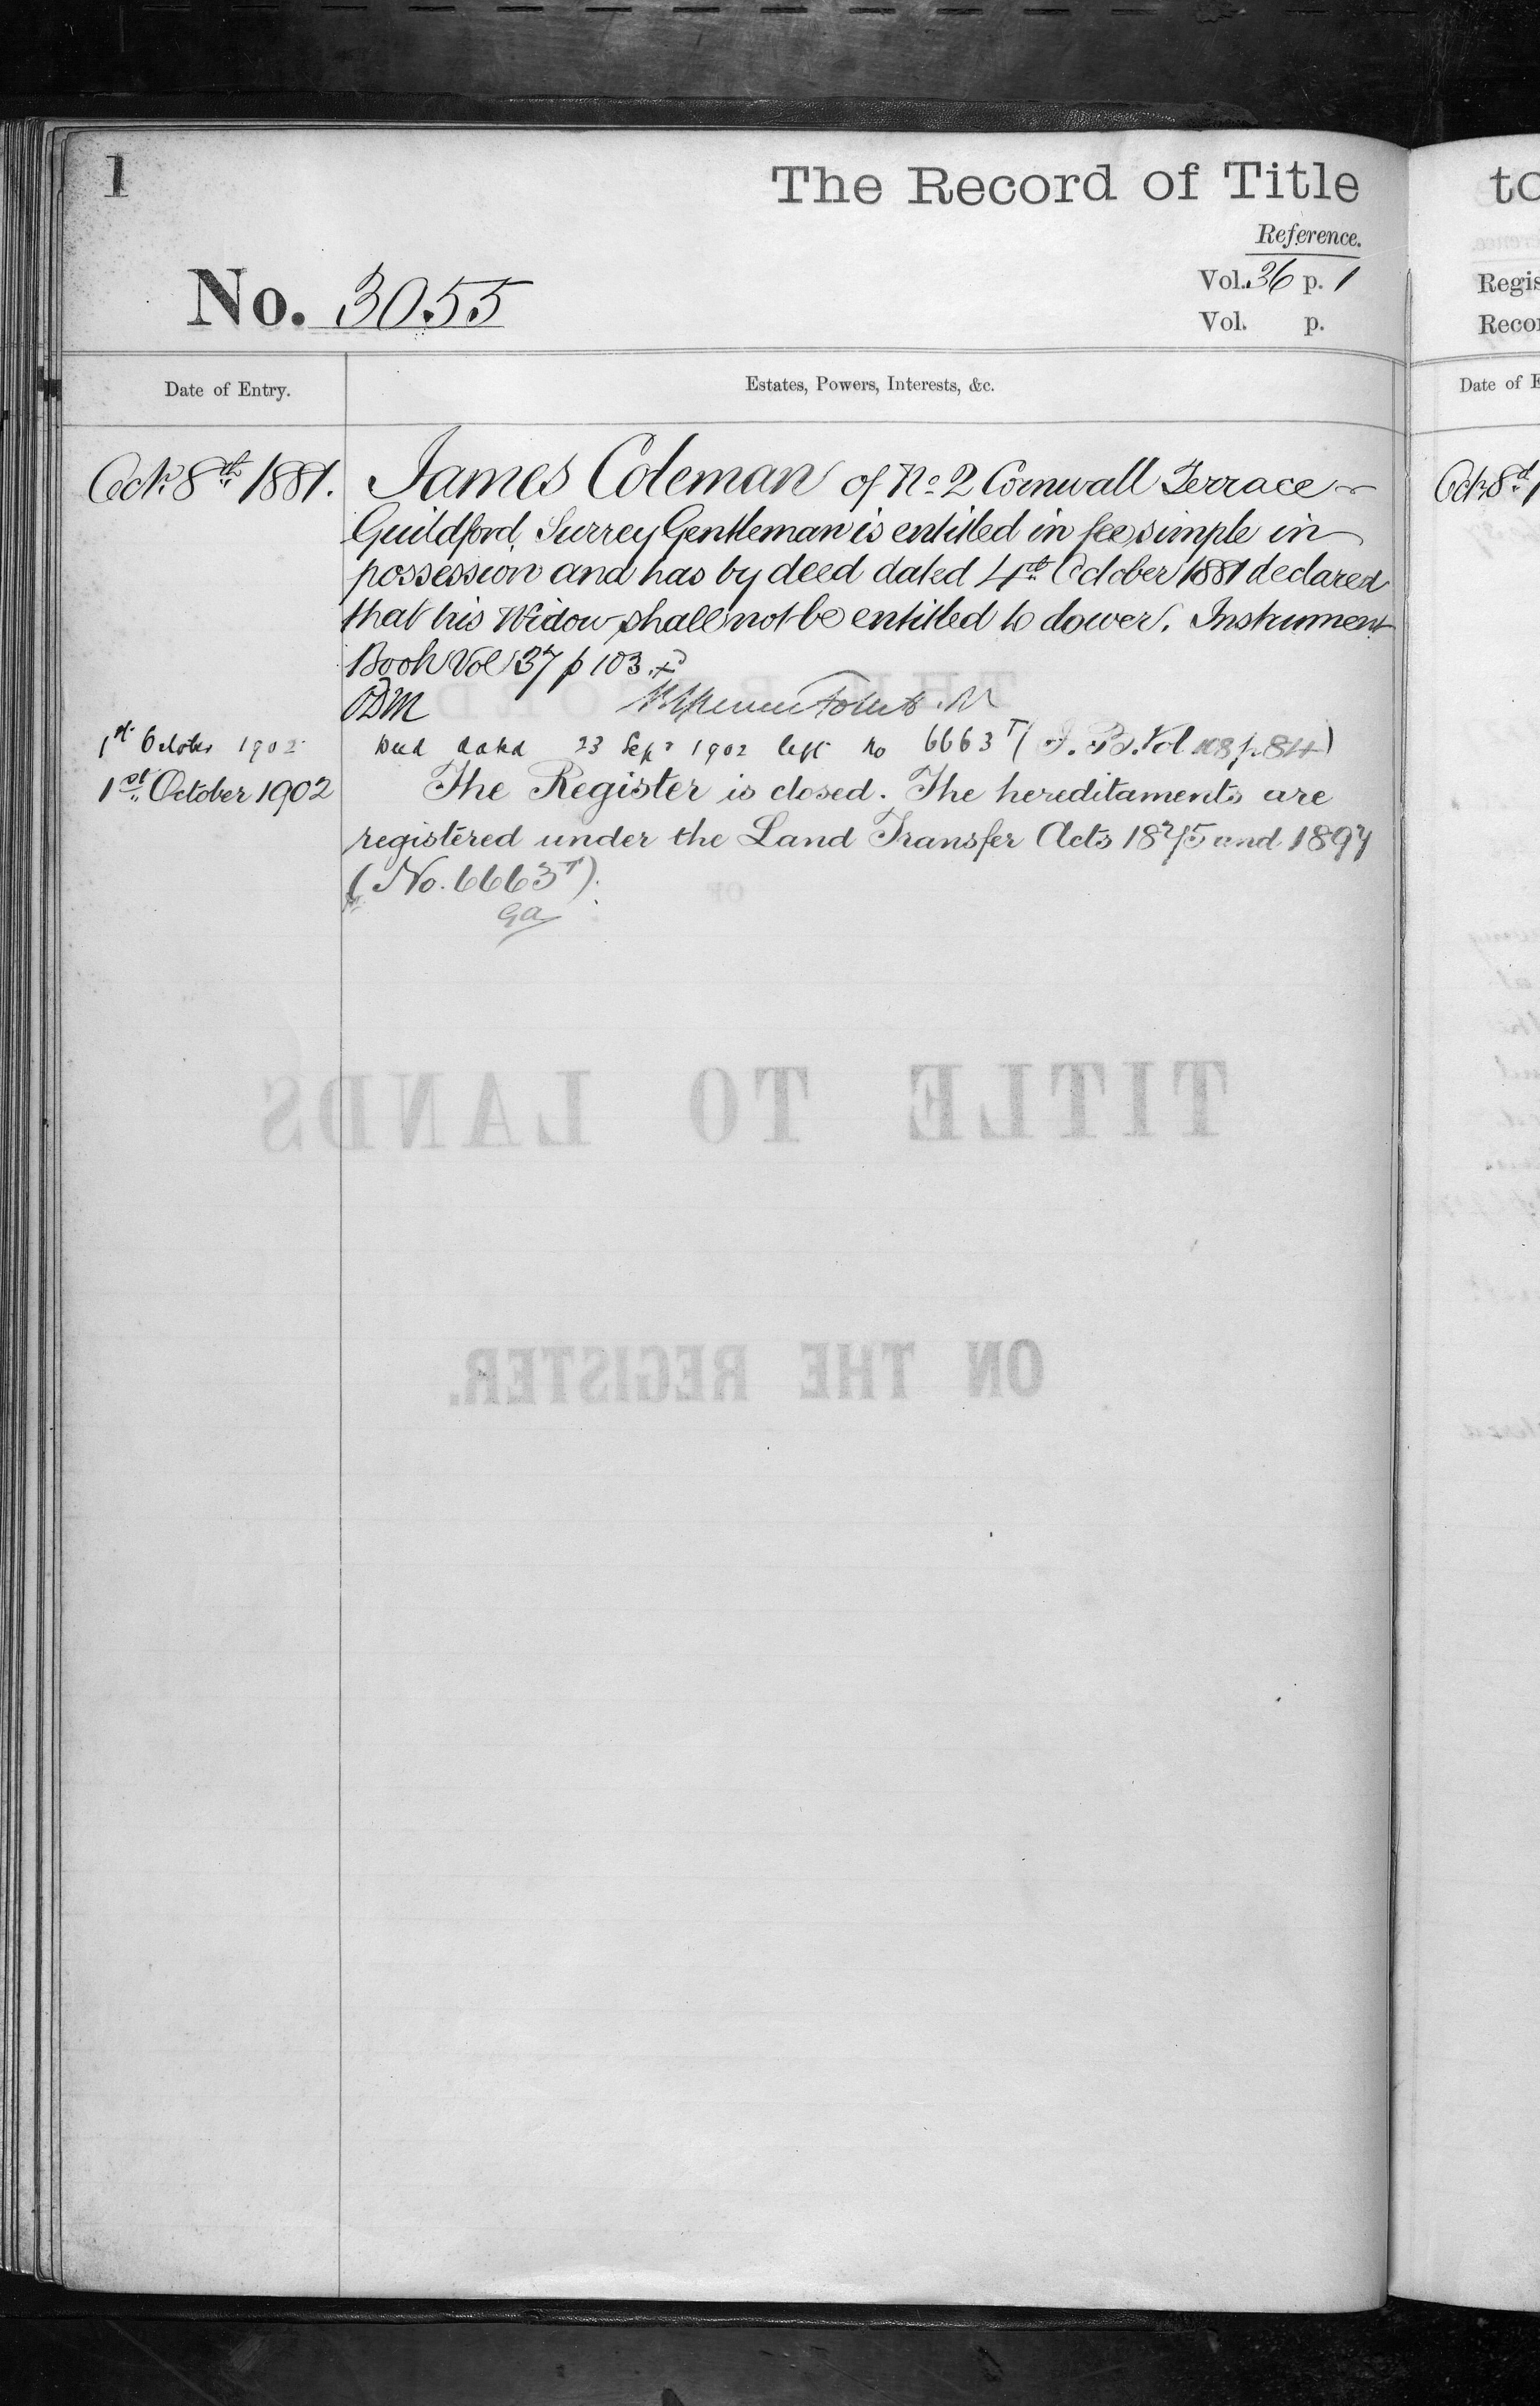 1
The Record of Title
Reference.
No. 3055
Vol. 36 p. 1
Vol. p.
Date of Entry. Estates, Powers, Interests, &c.
Octr. 8th 1881. James Coleman of No 2 Cornwall Terrace
Guildford Surrey Gentleman is entitled in fee simple in
possession and has by deed dated 4th October 1881 declared
that his Widow shall not be entitled to dower. Instrument
Book Vol 37 p 103.
1st October 1902 Deed dated 23 Sepr 1902 left no 6663T (I.B. Vol 108 p. 84)
1st October 1902 The Register is closed. The hereditaments are
registered under the Land Transfer Acts 1875 and 1897
(No. 6663T).
GA
TITLE TO LANDS
ON THE REGISTER.
to
Regis
Recor
Date of E
Octr 8th 1